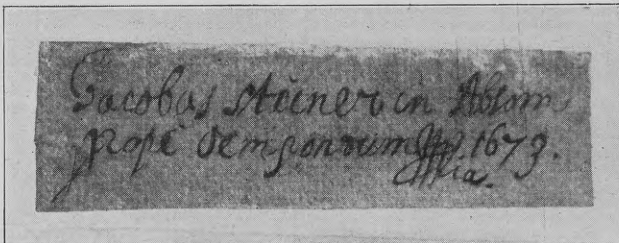 Jacobus Stainer in Absom
prope Oenipontum 1673.